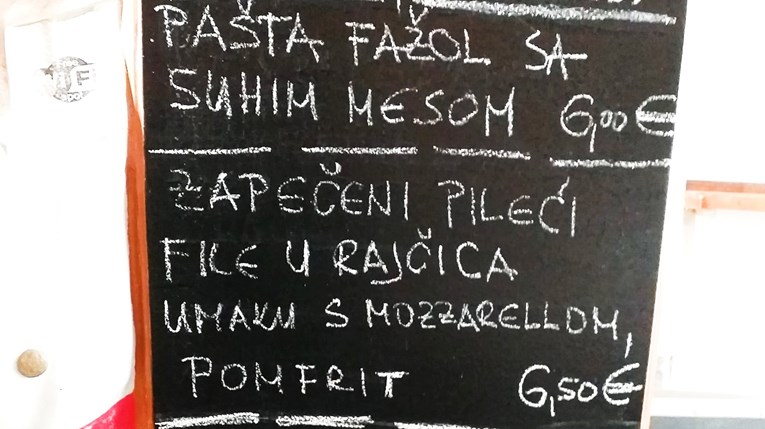 PAŠTA FAŽOL SA
SUHIM MESOM 6,00€
ZAPEČENI PILEĆI
FILE U RAJČICA
UMAKU S MOZZARELLOM,
POMFRIT 6,50€